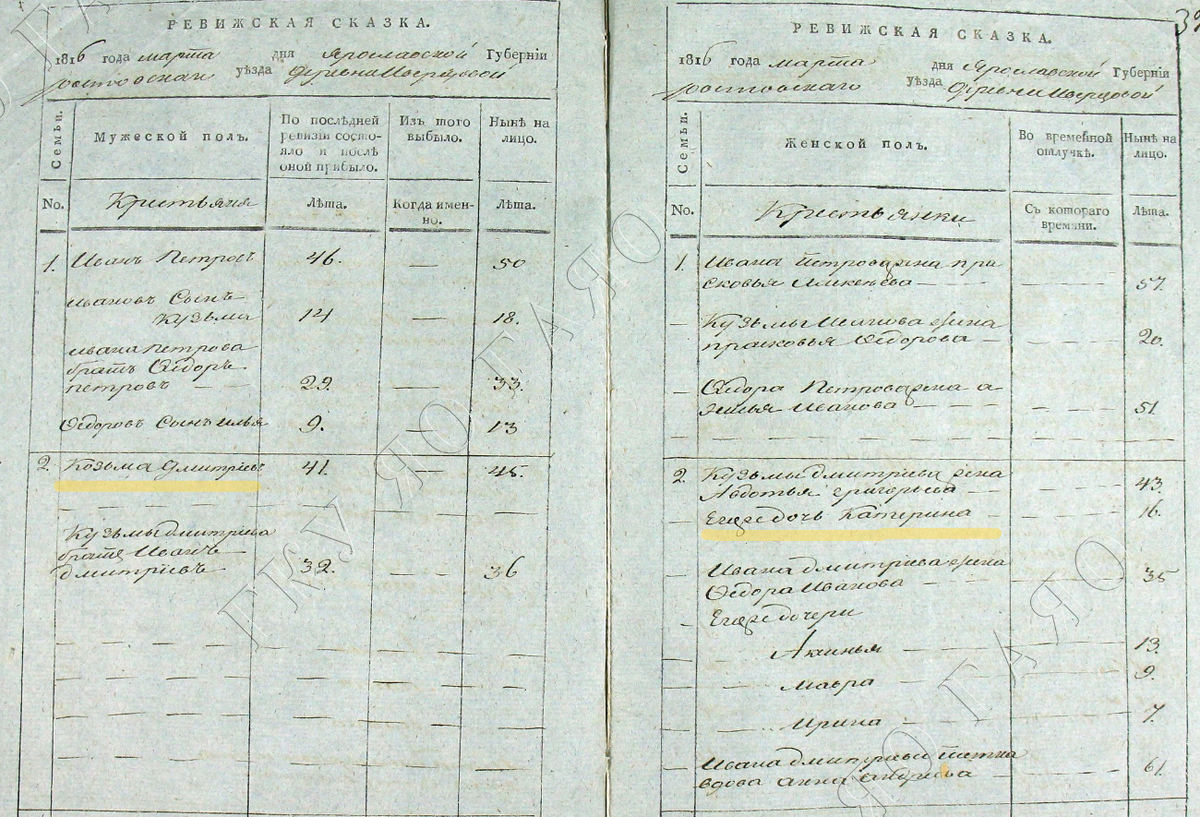 РЕВИЖСКАЯ СКАЗКА.
1816 года марта дня Ярославской Губерніи
Ростовскаго уѣзда Деревни
Семьи.
Мужеской полъ.
По послѣдней ревизіи состояло и послѣ оной прибыло.
Изъ того выбыло.
Нынѣ на лицо.
No.
Крестьяня
Лѣта.
Когда именно.
Лѣта.
1. Иванъ Петровъ 46. — 50
Ивановъ Сынъ
Кузьма 14 — 18.
Ивана Петрова
братъ Ѳедоръ
петровъ — — 29. — 33.
Ѳедоровъ Сынъ Илья 9. — 13
2. Козьма Дмитріевъ 41. — 45.
Кузьмы Дмитріева
братъ Иванъ
Дмитріевъ 32. — 36
39
РЕВИЖСКАЯ СКАЗКА.
1816 года марта дня Ярославской Губерніи
Ростовскаго уѣзда Деревни
Семьи.
Женской полъ.
Во временной отлучкѣ.
Нынѣ на лицо.
No.
Крестьянки
Съ котораго времяни.
Лѣта.
1. Ивана Петрова жена пра
сковья — 57.
— Кузьмы Иванова жена
прасковья Ѳедорова — 20.
— Ѳедора Петрова жена
Иванова — 51.
2. Кузьмы Дмитріева жена
Авдотья Григорьева — 43.
— Егоже дочь Катерина 16.
— Ивана Дмитріева жена
Ѳедора Иванова — 35
— Егоже дочери
Акинья — 13.
Мавра — 9.
Ирина — 7.
Ивана Дмитріева тетка
вдова Анна Андреева — 61.
ГКУ ЯО ГАЯО
ЯО ГАЯО